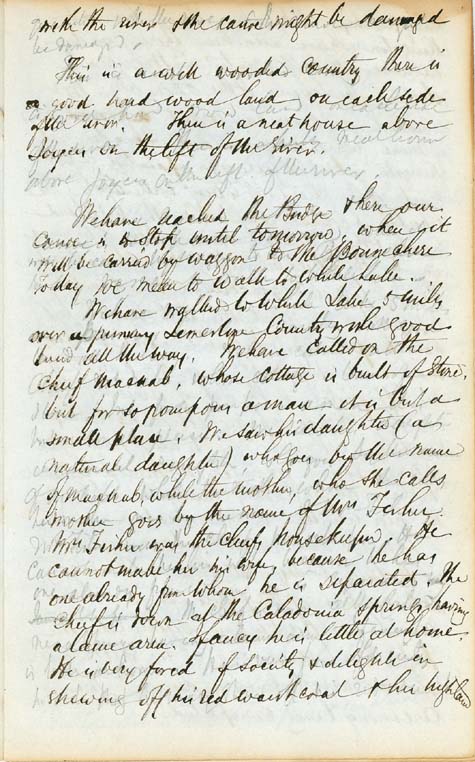 with the river & the canoe might be damaged
This is a well wooded country there is
good hard wood land on each side
of the river. There is a neat house above
on the left of the river.
We have reached the Bridge & here our
Canoe is to stop until tomorrow, when it
will be carried by waggon to the Bonnechere
Today we mean to walk to White Lake.
We have walked to White Lake 5 miles
over a primary Limestone Country with good
land all the way. We have called on the
Chief MacNab, whose cottage is built of Stone,
but for so pompous a man it is but a
small place. We saw his daughter (a
natural daughter) who goes by the name
of MacNab, while the mother, who she calls
mother goes by the name of Mrs Fisher.
Mrs Fisher was the Chiefs housekeeper. He
cannot make her his wife, because he has
one already from whom he is separated. The
Chief is down at the Caledonia Springs, having
a lame arm. I fancy he is little at home.
He is very fond of society & delights in
shewing off his red waistcoat & his highland